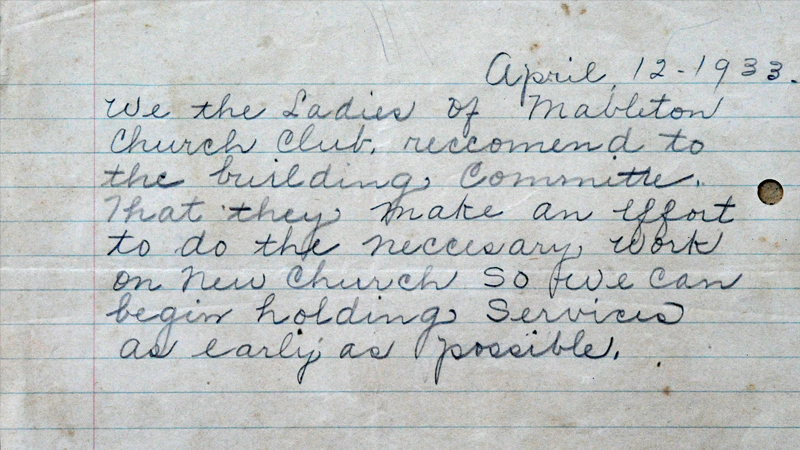 April 12-1933.
We the Ladies of Mableton
Church Club. reccomend to
the building Committe.
That they make an effort
to do the neccesary work
on New Church So we can
begin holding Services
as early as possible.